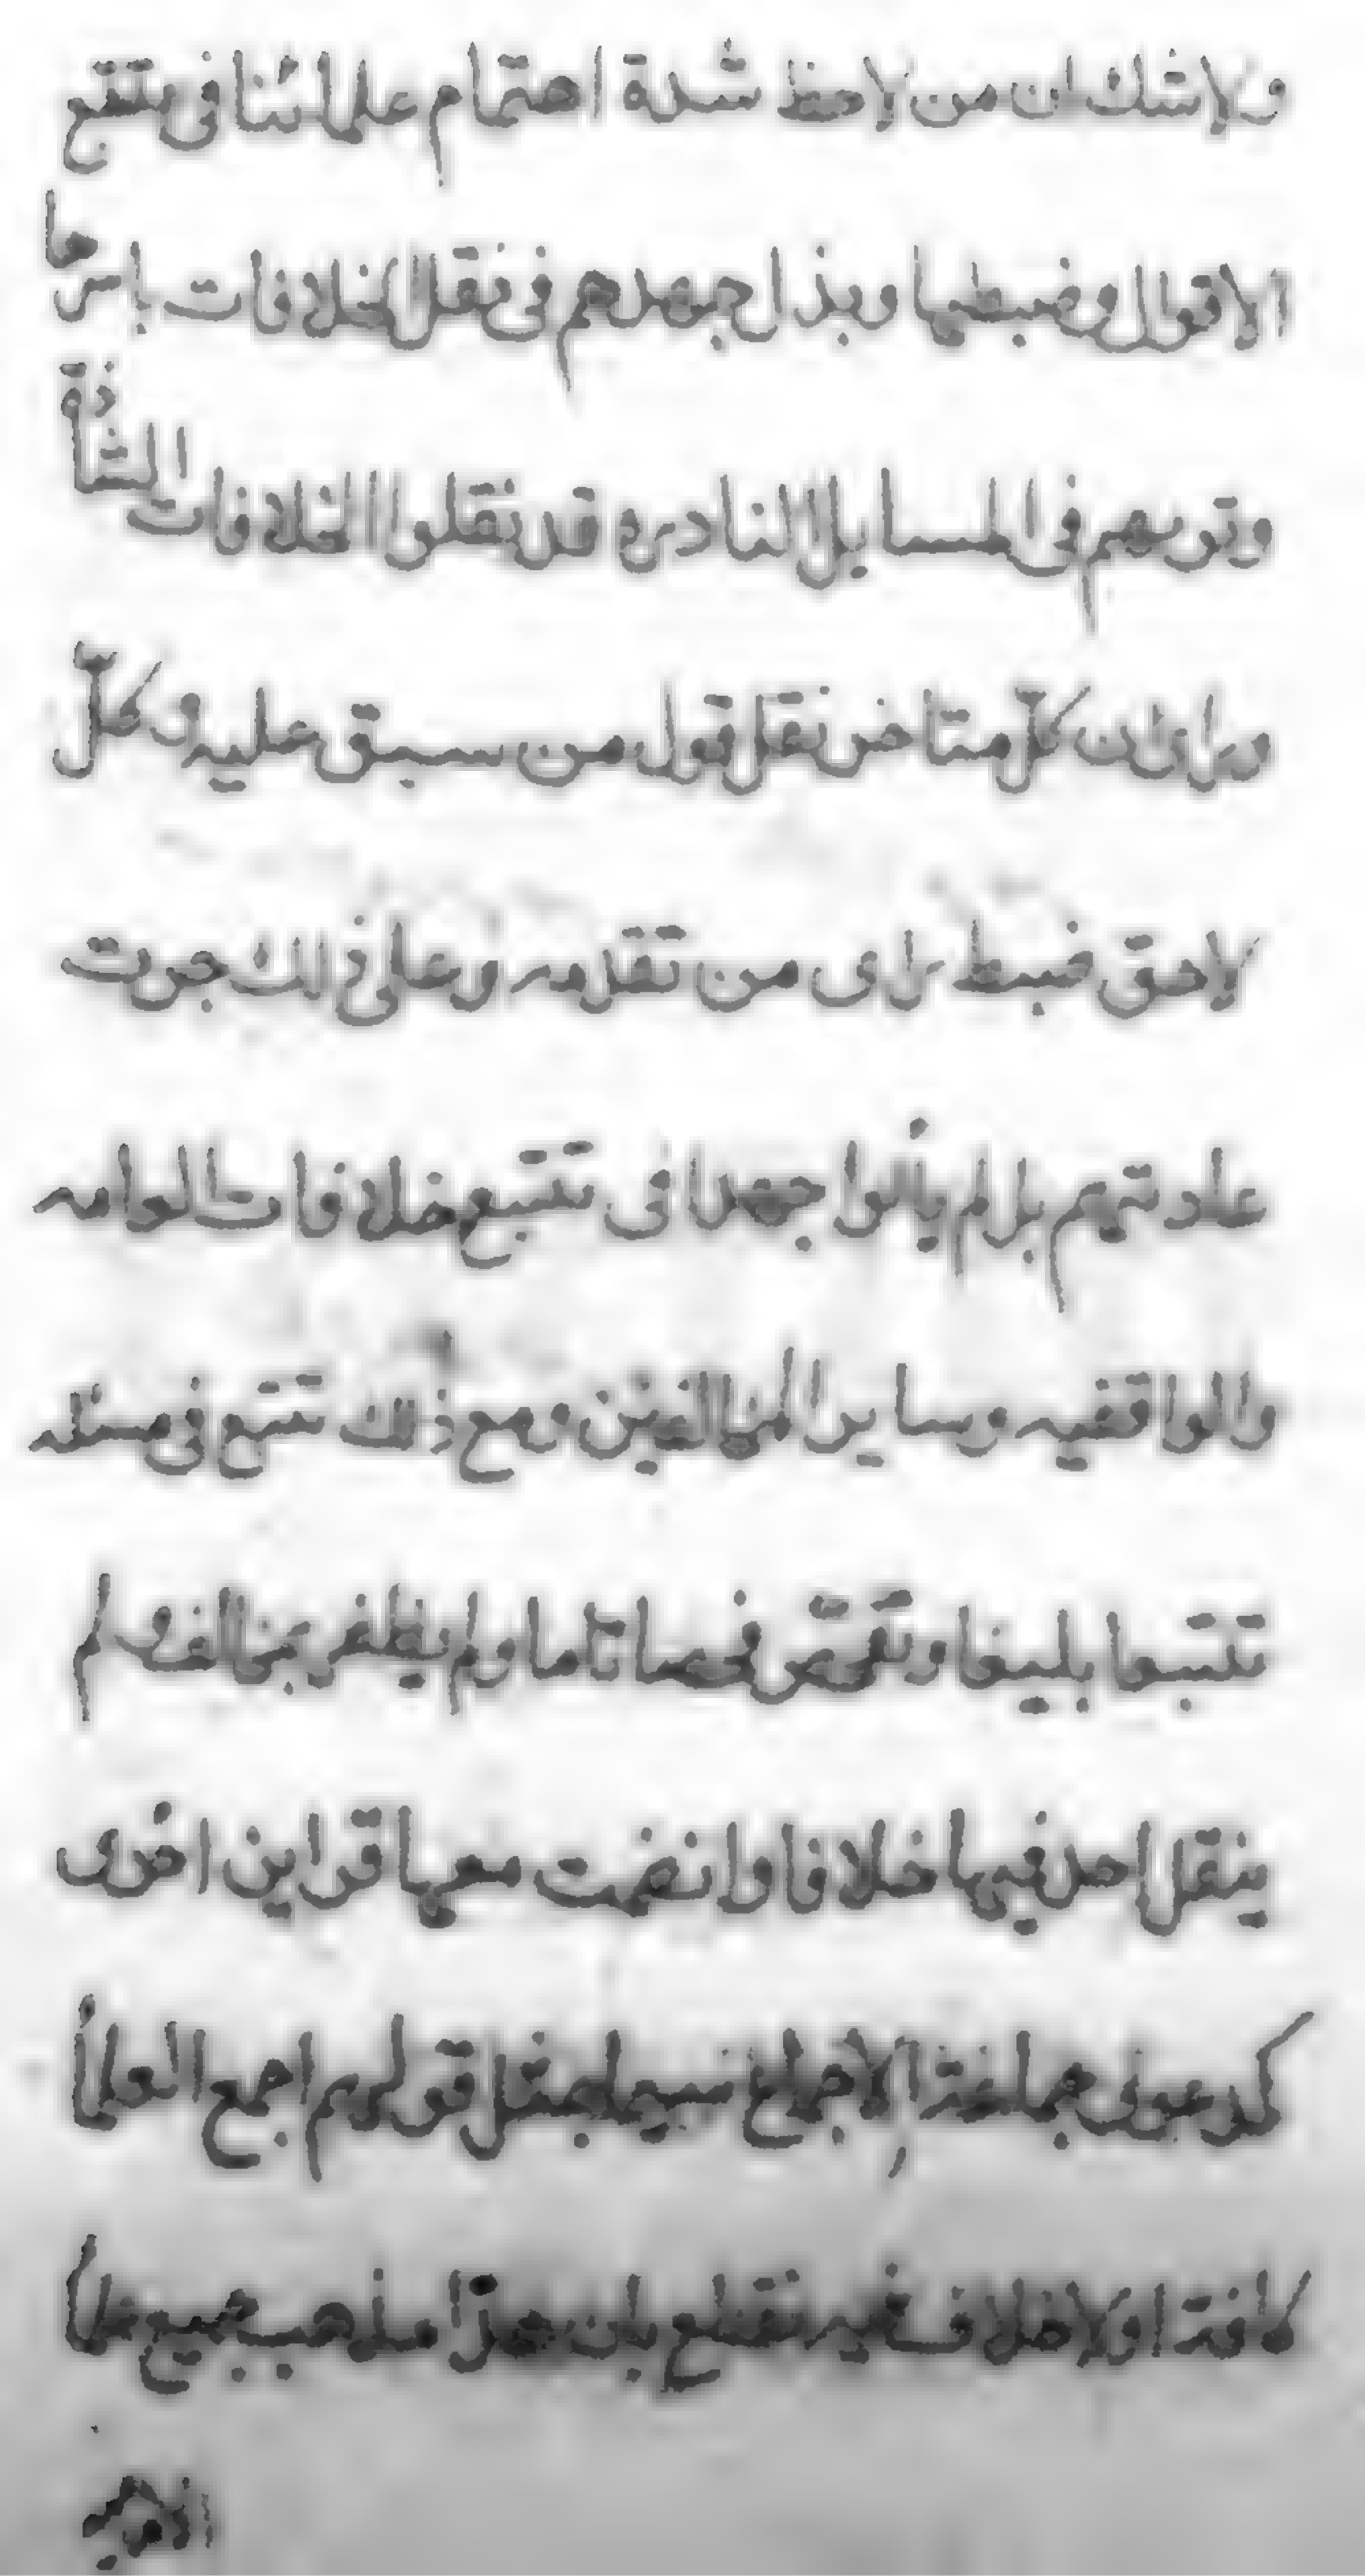 ولاشك ان من لاحظ شدة اهتمام علمائنا فى بتقع
الاقوال وضبطها وبذل جهدهم فى نقل الخلافات باسرها
وتوىهم فى المسايل النادره قد نقلوا الخلافات الشاذة
وراى ان كلّ متاخر نقل قول من سبق عليه وكلّ
لاحق ضبط راى من تقدمه وعلى ذالك جرت
عادتهم بل لم يألوا جهدا فى تتبع خلافات العامه
والواقفيه وساير المخالفين ومع ذلك تتبع فى مسئله
تتبعا بليغا وتفحّص فحصا تاما ولم يظفر بمخالف ولم
ينقل احد فيها خلافا وانضمت معها قراين اخرى
كدعوى جماعة الاجماع سيما بمثل قولهم اجمع العلمأ
كافة او لاخلاف فيه نقطع بان هذا مذهب جميع علمأ